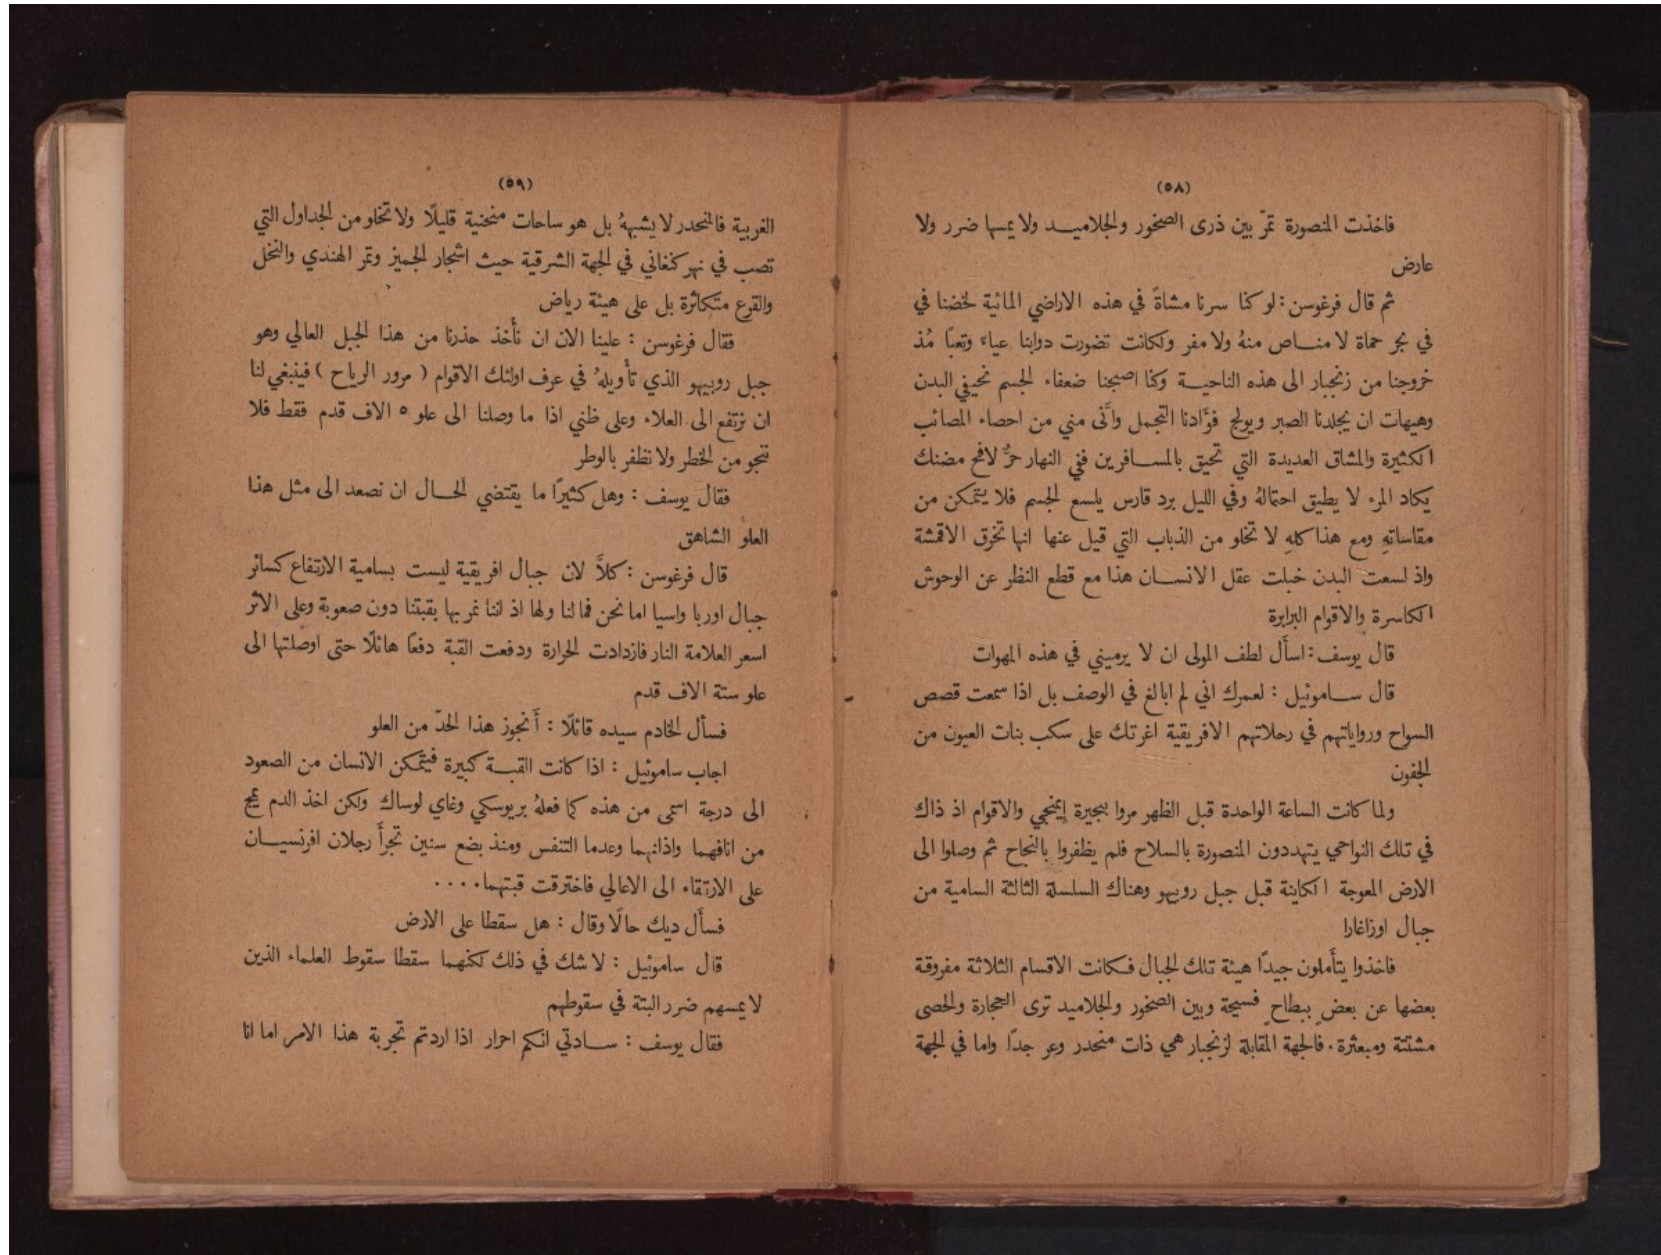 (٥٨)
فاخذت المنصورة تمرّ بين ذرى الصخور والجلاميـد ولا يمسها ضرر ولا
عارض
ثم قال فرغوسن : لو كنا سرنا مشاةً في هذه الاراضي المائية لخضنا في
في بحر حماة لا منـاص منهُ ولا مفر ولكانت تضورت دوابنا عياءً وتعبًا مُذ
خروجنا من زنجبار الى هذه الناحيـة وكنا اصبحنا ضعفاء الجسم نحيفي البدن
وهيهات ان يجلدنا الصبر ويولج فوَّادنا التجمل وانَّى مني من احصاء المصائب
الكثيرة والمشاق العديدة التي تحيق بالمسـافرين ففي النهار حرٌّ لافح مضنك
يكاد المرء لا يطيق احتمالهُ وفي الليل برد قارس يلسع الجسم فلا يتمكن من
مقاساتهِ ومع هذا كلهِ لا تخلو من الذباب التي قيل عنها انها تخرق الاقمشة
واذ لسعت البدن خبلت عقل الانسـان هذا مع قطع النظر عن الوحوش
الكاسرة والاقوام البرابرة
قال يوسف : اسأَل لطف المولى ان لا يرميني في هذه المهوات
قال سـاموئيل : لعمرك اني لم ابالغ في الوصف بل اذا سمعت قصص
السواح ورواياتهم في رحلاتهم الافريقية اغرتك على سكب بنات العيون من
الجفون
ولما كانت الساعة الواحدة قبل الظهر مروا ببحيرة إيمنجي والاقوام اذ ذاك
في تلك النواحي يتهددون المنصورة بالسلاح فلم يظفروا بالنجاح ثم وصلوا الى
الارض المعوجة الكاينة قبل جبل روبيهو وهناك السلسلة الثالثة السامية من
جبال اوزاغارا
فاخذوا يتأَملون جيدًا هيئة تلك الجبال فـكانت الاقسام الثلاثة مفروقة
بعضها عن بعضٍ ببطاحٍ فسيحة وبين الصخور والجلاميد ترى الحجارة والحصى
مشتتة ومبعثرة . فالجهة المقابلة لزنجبار هي ذات منحدر وعر جدًا واما في الجهة
(٥٩)
الغربية فالمنحدر لا يشبههُ بل هو ساحات منحنية قليلًا ولا تخلو من الجداول التي
تصب في نهر كنغاني في الجهة الشرقية حيث اشجار الجميز وتمر الهندي والنخل
والقرع متكاثرة بل على هيئة رياض
فقال فرغوسن : علينا الان ان نأْخذ حذرنا من هذا الجبل العالي وهو
جبل روبيهو الذي تأْويلهُ في عرف اولئك الاقوام ( مرور الرياح ) فينبغي لنا
ان نرتفع الى العلاء وعلى ظني اذا ما وصلنا الى علو ٥ الاف قدم فقط فلا
ننجو من الخطر ولا نظفر بالوطر
فقال يوسف : وهل كثيرًا ما يقتضي الحـال ان نصعد الى مثل هذا
العلو الشاهق
قال فرغوسن : كلاَّ لان جبال افريقية ليست بسامية الارتفاع كسائر
جبال اوربا واسيا اما نحن فما لنا ولها اذ اننا نمر بها بقبتنا دون صعوبة وعلى الاثر
اسعر العلامة النار فازدادت الحرارة ودفعت القبة دفعًا هائلًا حتى اوصلتها الى
علو ستة الاف قدم
فسأل الخادم سيده قائلًا : أَنجوز هذا الحدّ من العلو
اجاب ساموئيل : اذا كانت القبـة كبيرة فيتمكن الانسان من الصعود
الى درجة اسمى من هذه كما فعلهُ بريوسكي وغاي لوساك ولكن اخذ الدم يمج
من انافهما واذانهما وعدما التنفس ومنذ بضع سنين تجرأَ رجلان افرنسيـان
على الارتقاء الى الاعالي فاخترقت قبتهما . . . .
فسأَل ديك حالًا وقال : هل سقطا على الارض
قال ساموئيل : لا شك في ذلك لكنهما سقطا سقوط العلماء الذين
لا يمسهم ضرر البتة في سقوطهم
فقال يوسف : سـادتي انكم احرار اذا اردتم تجربة هذا الامر اما انا